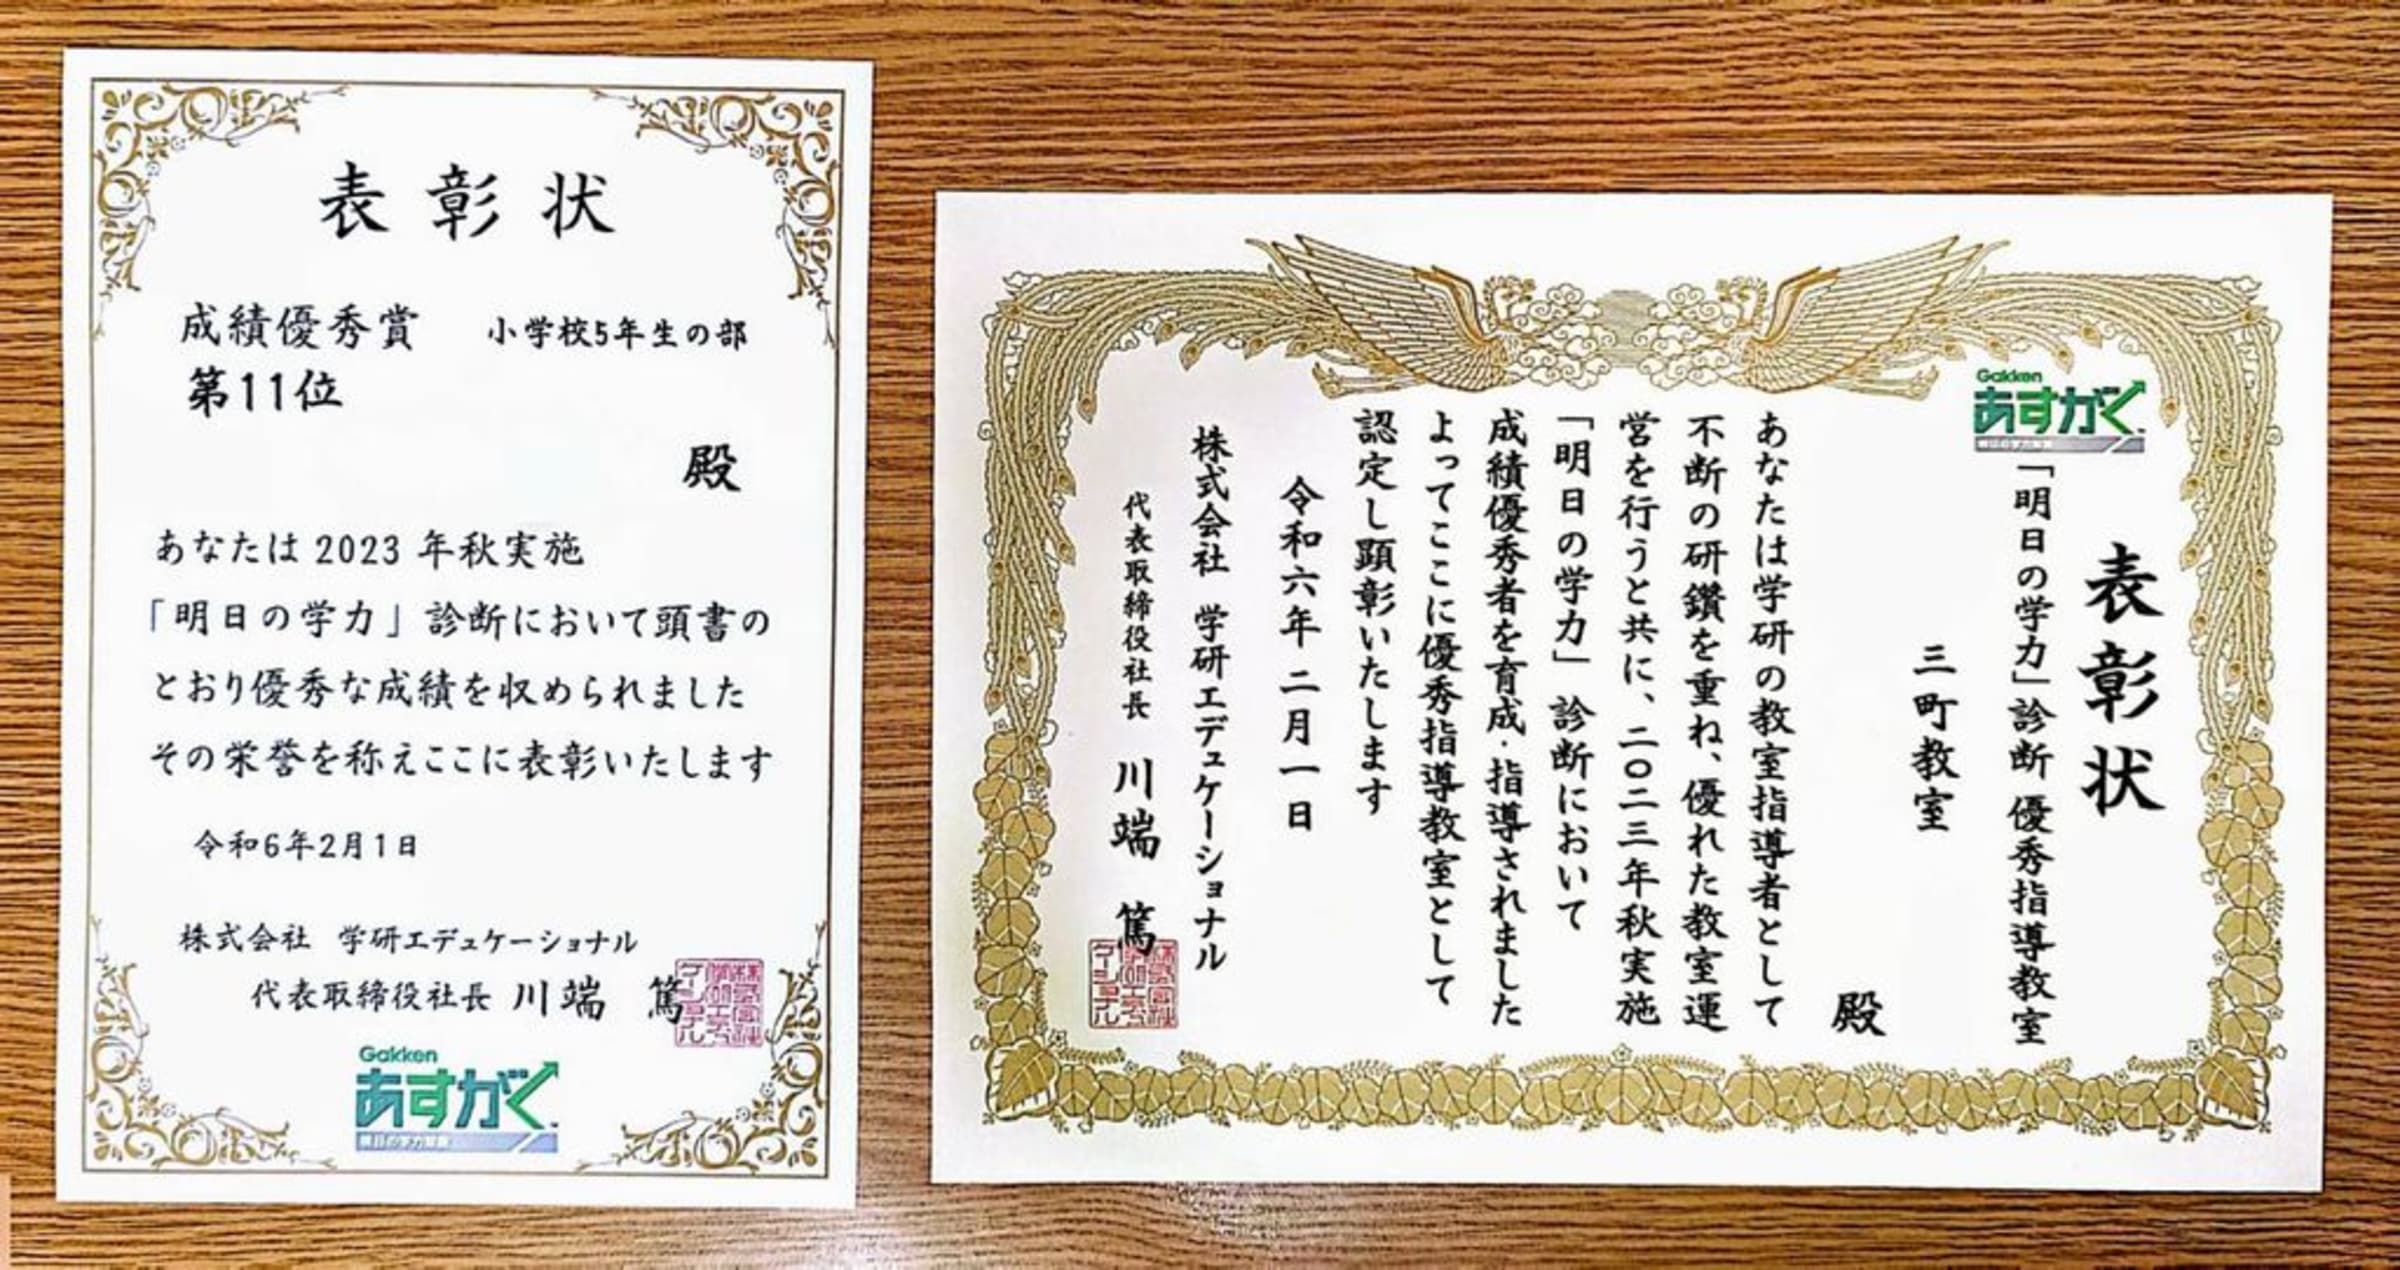 表彰状
成績優秀賞 小学校5年生の部
第11位
殿
あなたは2023年秋実施
「明日の学力」診断において頭書の
とおり優秀な成績を収められました
その栄誉を称えここに表彰いたします
令和6年2月1日
株式会社 学研エデュケーショナル
代表取締役社長 川端 篤
Gakken
あすがく
表彰状
Gakken
あすがく
「明日の学力」診断 優秀指導教室
三町教室
殿
あなたは学研の教室指導者として
不断の研鑽を重ね、優れた教室運
営を行うと共に、二〇二三年秋実施
「明日の学力」診断において
成績優秀者を育成・指導されました
よってここに優秀指導教室として
認定し顕彰いたします
令和六年二月一日
株式会社 学研エデュケーショナル
代表取締役社長 川端 篤